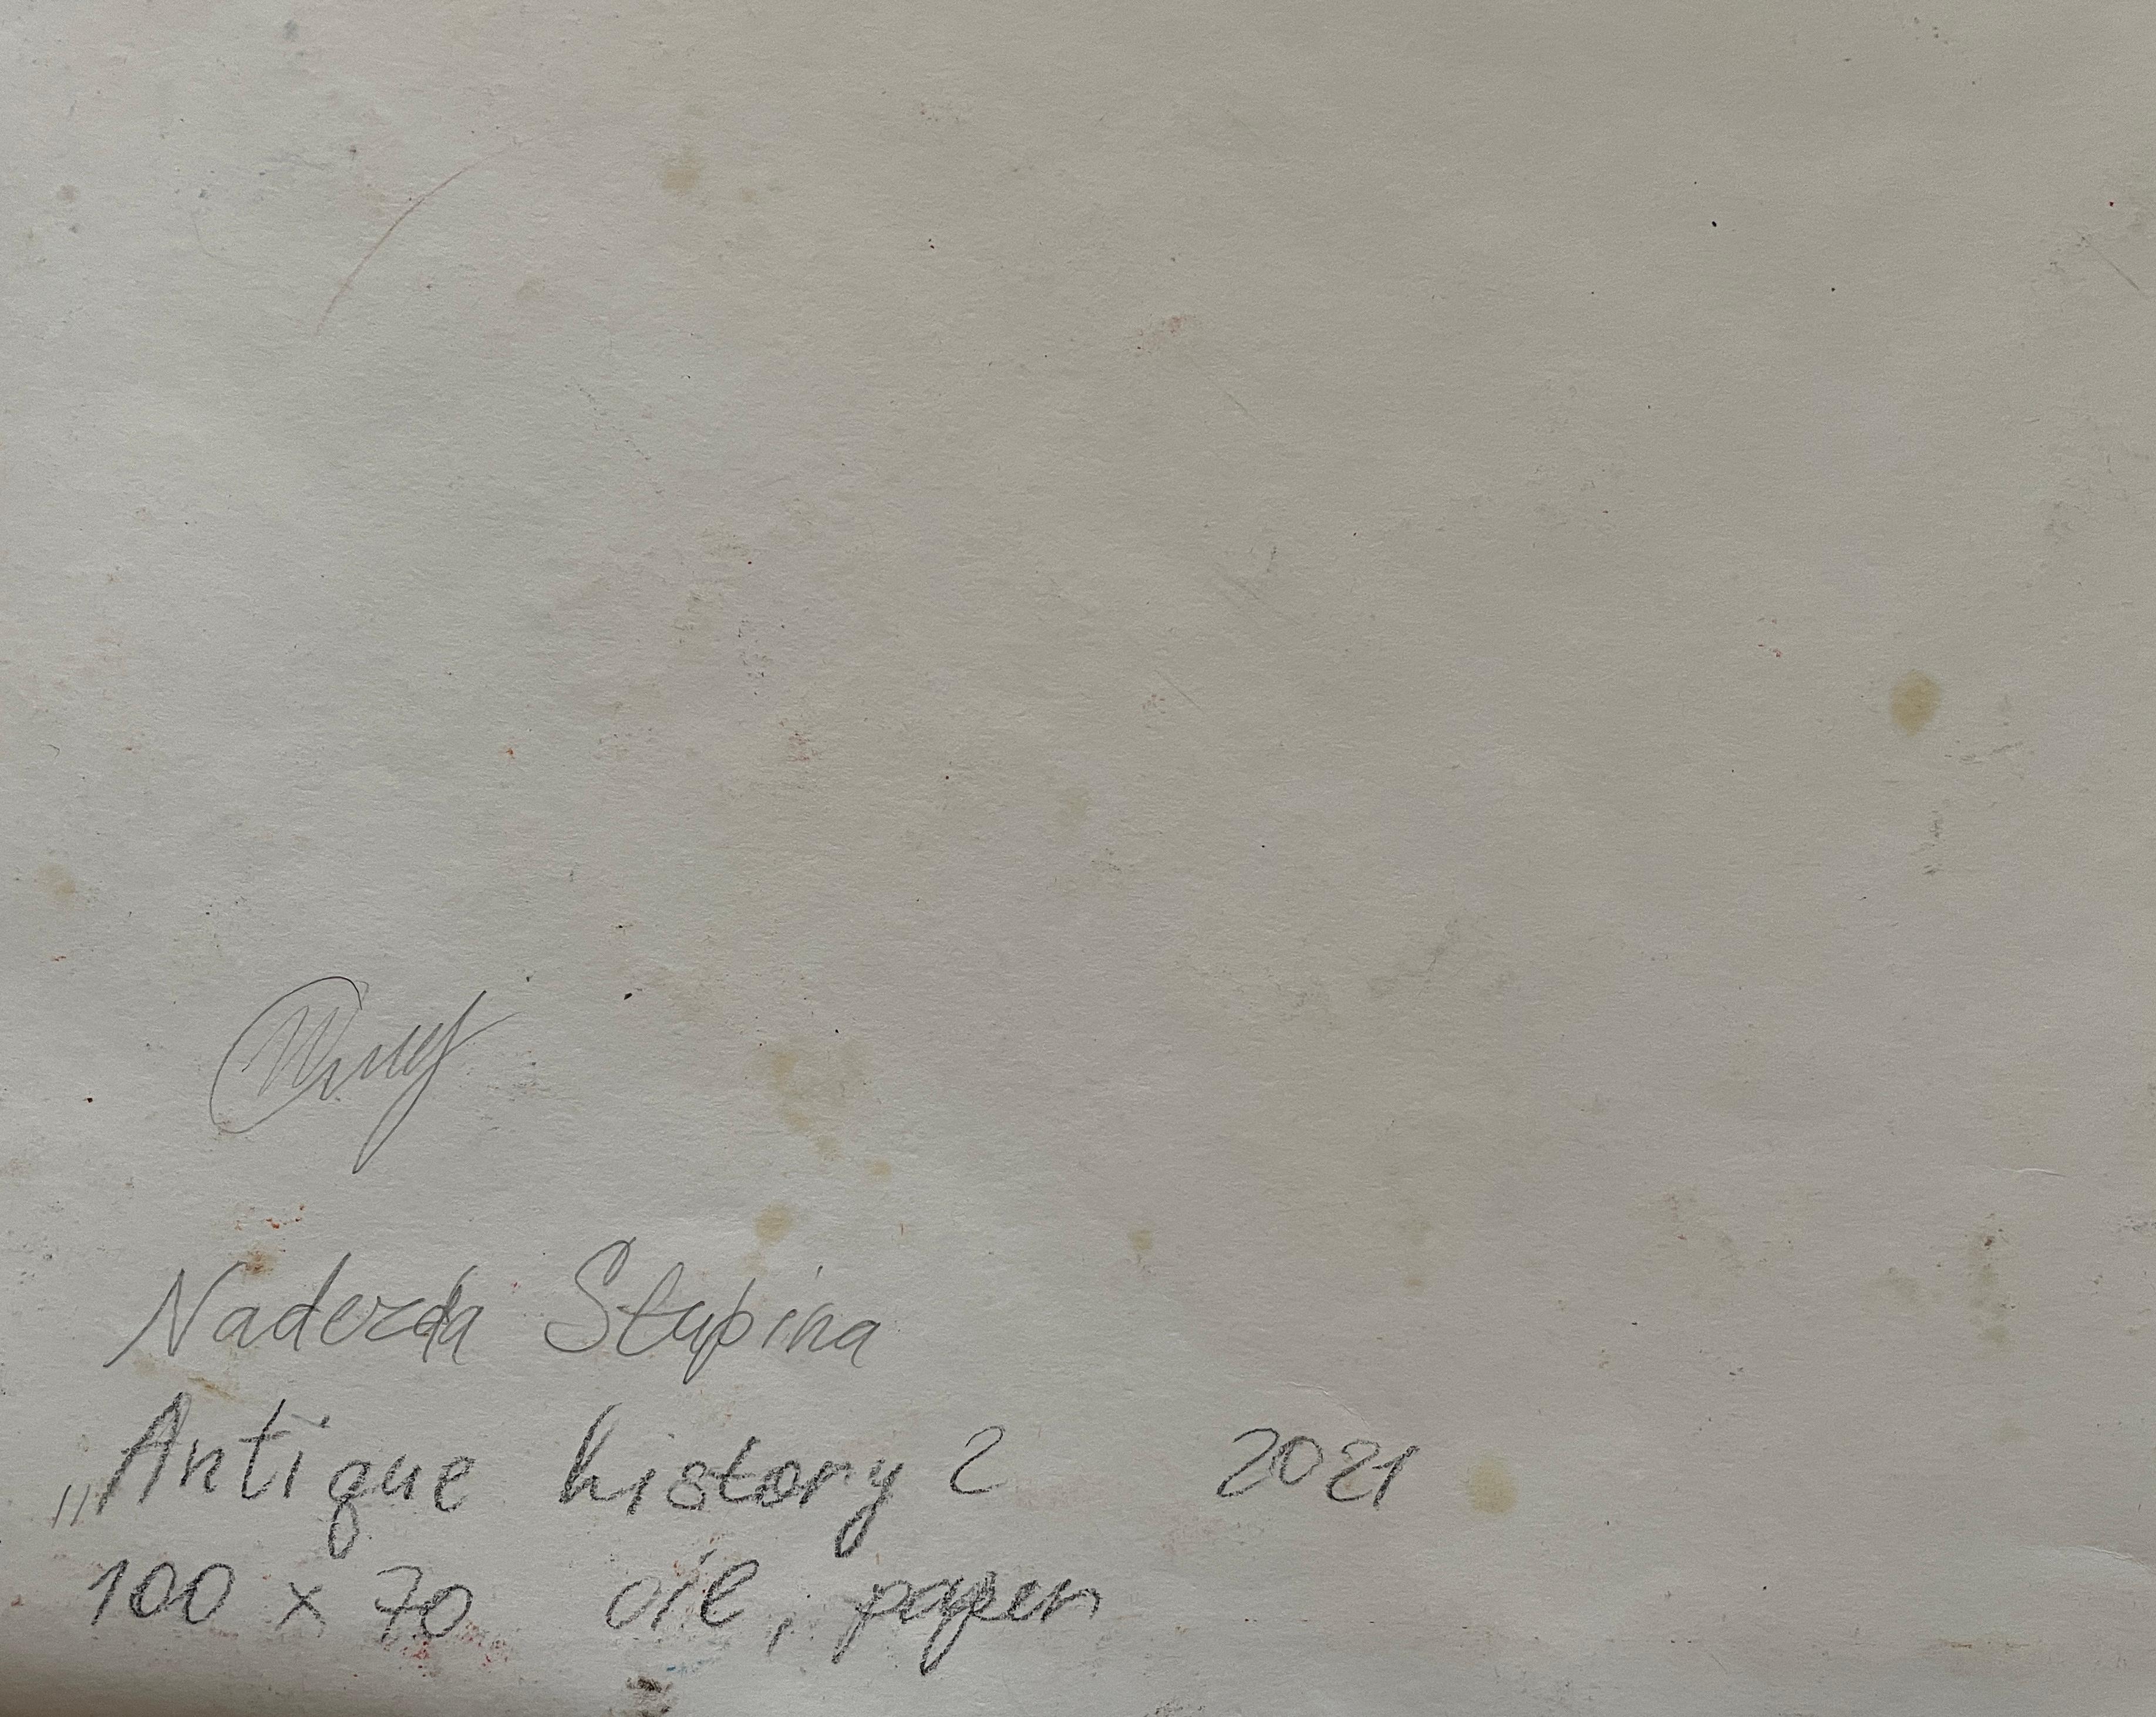 Naderda Stupina
„Antique history 2 2021
100 x 70 oil, paper